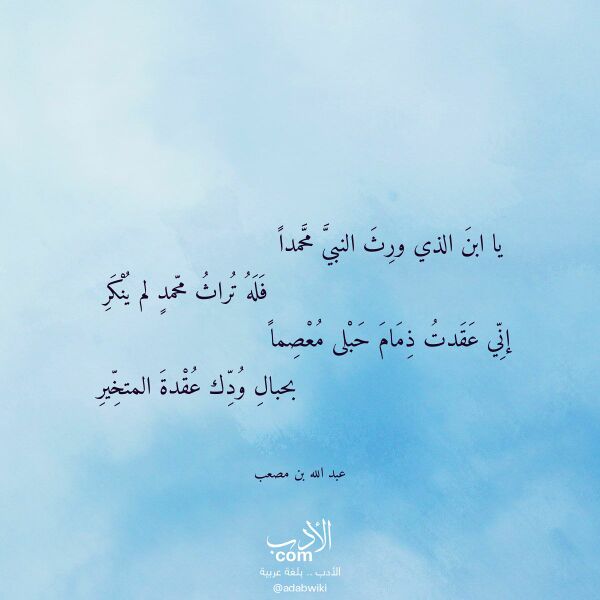 يا ابنَ الذي ورِثَ النبيَّ محَّمداً
فَلَهُ تُراثُ محّمدٍ لم يُنْكَرِ
إنِّي عَقَدتُ ذِمَامَ حَبْلى مُعْصِماً
بحبالِ وُدِّك عُقْدةَ المتخِّيرِ
عبد الله بن مصعب
الأدب
com
الأدب .. بلغة عربية
@adabwiki